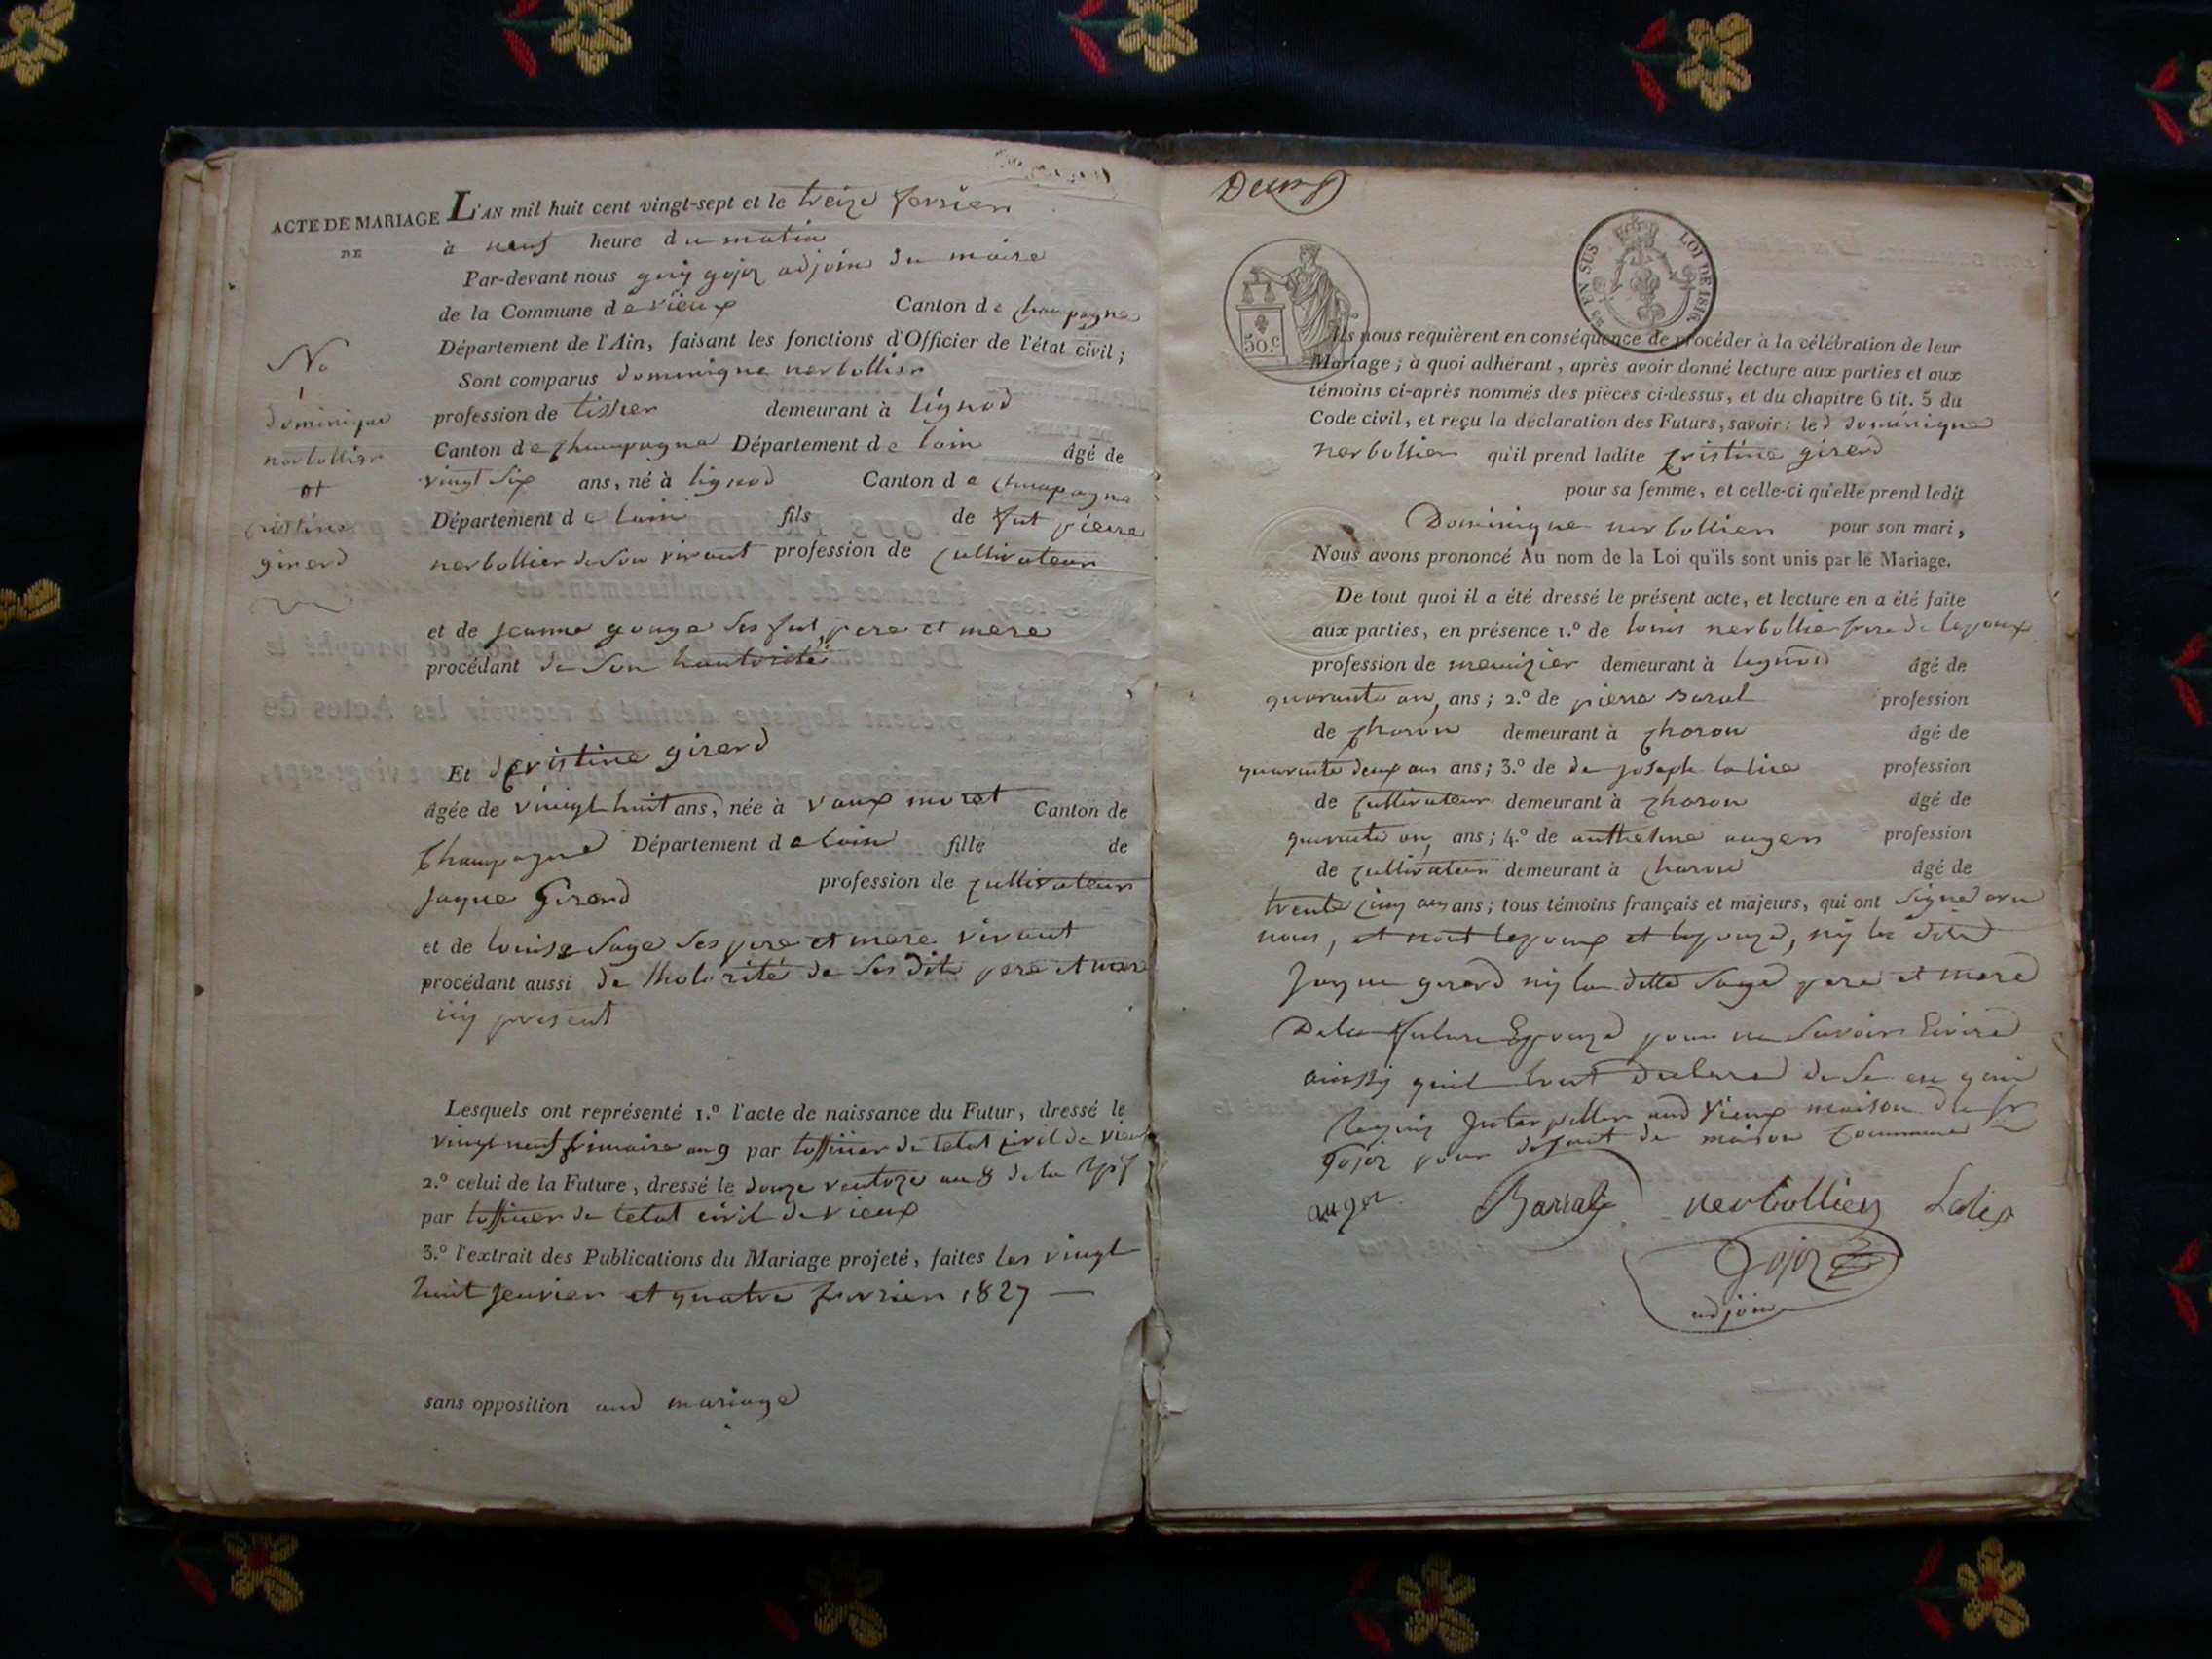 ACTE DE MARIAGE
DE
No
1
dominique
nerbollier
et
cristine
girerd
L'AN mil huit cent vingt-sept et le treize fevrier
à neuf heure du matin
Par-devant nous guy gojoz adjoin du maire
de la Commune de vieux Canton de champagne
Département de l'Ain, faisant les fonctions d'Officier de l'état civil;
Sont comparus dominique nerbollier
profession de tisser demeurant à lignod
Canton de champagne Département de lain âgé de
vingt six ans, né à lignod Canton de champagne
Département de lain fils de fut pierre
nerbollier de son vivant profession de cultivateur
et de jeanne gonge ses fut pere et mere
procédant de son hautorité
Et cristine girerd
âgée de vingt huit ans, née à vaux moret Canton de
champagne Département de lain fille de
jaque Girerd profession de cultivateur
et de louise sage ses pere et mere vivant
procédant aussi de lhotorité de ses dit pere et mere
iiy present
Lesquels ont représenté 1.º l'acte de naissance du Futur, dressé le
vingt neuf frimaire an 9 par loffiier de letat civil de vieux
2.º celui de la Future, dressé le douze ventoze an 8 de la
par loffiier de letat civil de vieux
3.º l'extrait des Publications du Mariage projeté, faites les vingt
huit jenvier et quatre fevrier 1827
sans opposition aud mariage
Deux
50.c
EN SUS LOI DE 1816.
Ils nous requièrent en conséquence de procéder à la célébration de leur
Mariage; à quoi adhérant, après avoir donné lecture aux parties et aux
témoins ci-après nommés des pièces ci-dessus, et du chapitre 6 tit. 5 du
Code civil, et reçu la déclaration des Futurs, savoir: led dominique
nerbollier qu'il prend ladite cristine girerd
pour sa femme, et celle-ci qu'elle prend ledit
Dominique nerbollier pour son mari,
Nous avons prononcé Au nom de la Loi qu'ils sont unis par le Mariage.
De tout quoi il a été dressé le présent acte, et lecture en a été faite
aux parties, en présence 1.º de louis nerbollier frere de lepoux
profession de meunizier demeurant à lignod âgé de
quarante an, ans; 2.º de pierre baral profession
de charon demeurant à charon âgé de
quarante deux an ans; 3.º de de joseph lalix profession
de cultivateur demeurant à charon âgé de
quarante an, ans; 4.º de anthelme auger profession
de cultivateur demeurant à charon âgé de
trente cinq an ans; tous témoins français et majeurs, qui ont signé avec
nous, et nont lepoux et lepouze, ny le dit
jaque girerd ny la ditte sage pere et mere
De la future Epouze pour ne savoir Ecrire
ainssy quil lont declaré de se en quis
Requis Juter peller aud vieux maison du sr
gojoz pour defaut de maison commune
auger Barral nerbollier Lalix
Gojoz
adjoin